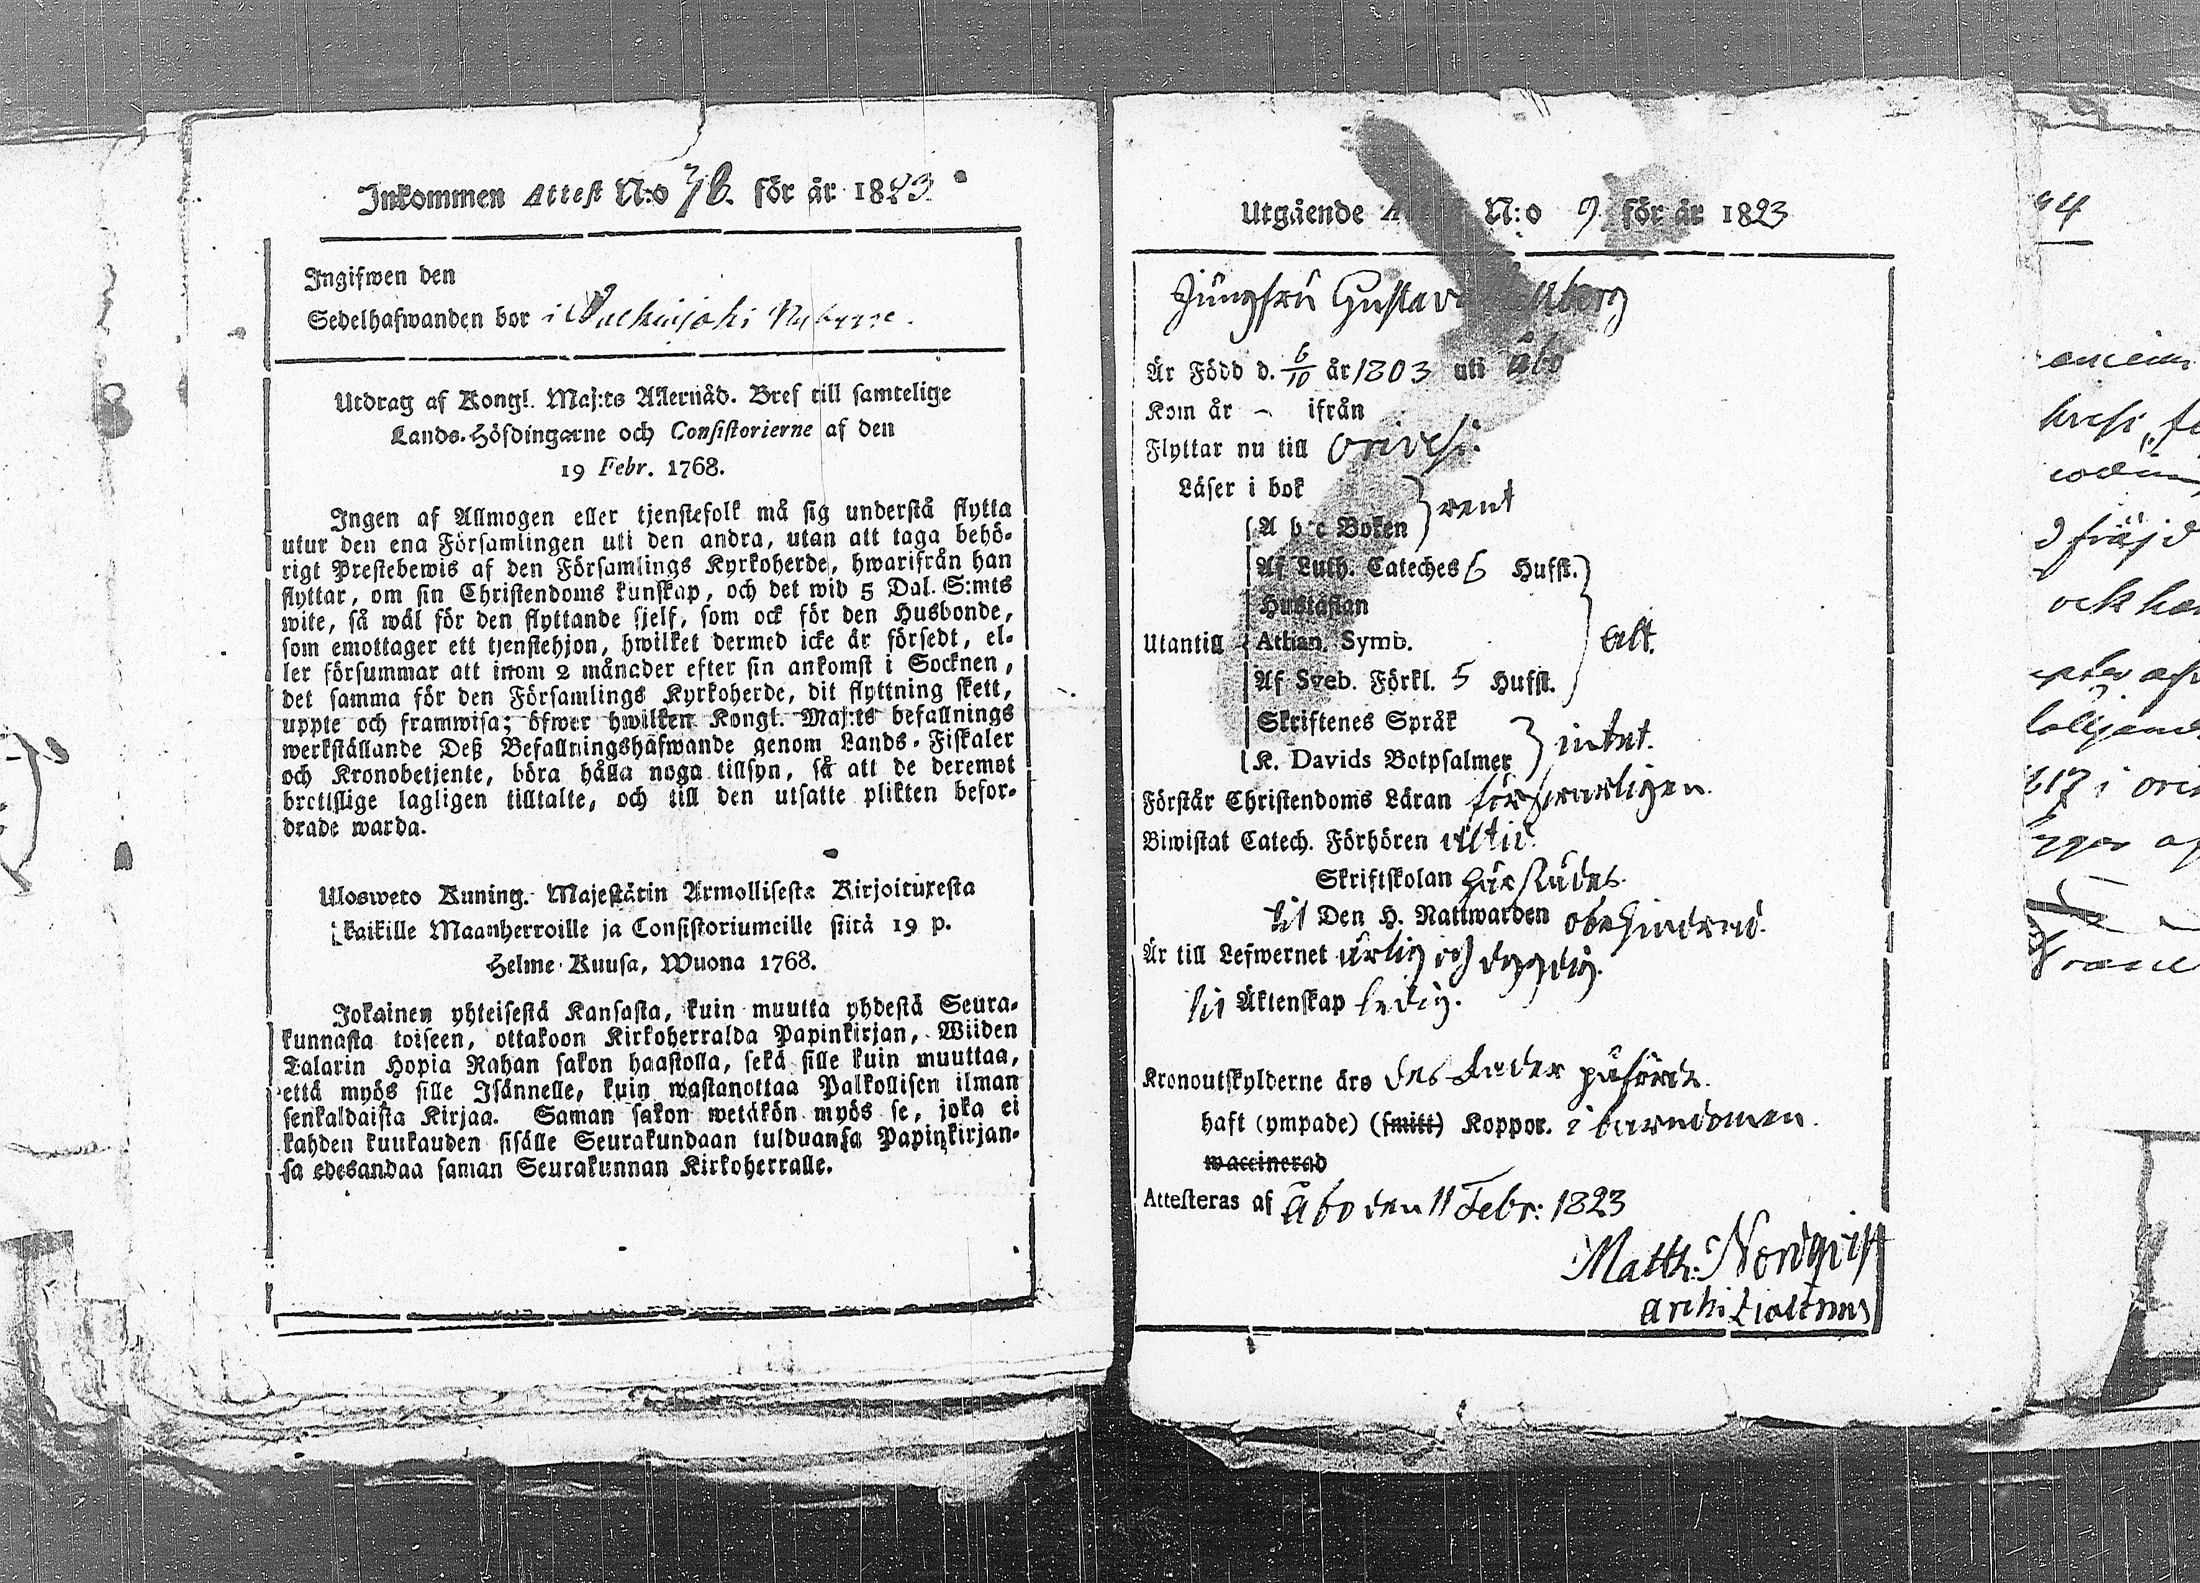 Inkommen Attest N:o 76. för år 1823.
Ingifwen den
Sedelhafwanden bor i
Utdrag af Kongl. Maj:ts Allernåd. Bref till samtelige
Lands-Höfdingarne och Consistorierne af den
19 Febr. 1768.
Ingen af Allmogen eller tjenstefolk må sig understå flytta
utur den ena Församlingen uti den andra, utan att taga behö-
rigt Prestebewis af den Församlings Kyrkoherde, hwarifrån han
flyttar, om sin Christendoms kunskap, och det wid 5 Dal. S:mts
wite, så wäl för den flyttande sjelf, som ock för den Husbonde,
som emottager ett tjenstehjon, hwilket dermed icke är försedt, el-
ler försummar att inom 2 månader efter sin ankomst i Socknen,
det samma för den Församlings Kyrkoherde, dit flyttning skett,
uppte och framwisa; öfwer hwilken Kongl. Maj:ts befallnings
werkställande Deß Befallningshafwande genom Lands-Fiskaler
och Kronobetjente, böra hålla noga tillsyn, så att de deremot
brottslige lagligen tilltalte, och till den utsatte plikten befor-
drade warda.
Ulosweto Kuning. Majestätin Armollisesta Kirjoituxesta
kaikille Maanherroille ja Consistoriumeille siitä 19 p.
Helme-Kuusa, Wuona 1768.
Jokainen yhteisestä Kansasta, kuin muutta yhdestä Seura-
kunnasta toiseen, ottakoon Kirkoherralda Papinkirjan, Wiiden
Talarin Hopia Rahan sakon haastolla, sekä sille kuin muuttaa,
että myös sille Isännelle, kuin wastanottaa Palkollisen ilman
senkaldaista Kirjaa. Saman sakon wetäkön myös se, joka ei
kahden kuukauden sisälle Seurakundaan tulduansa Papinkirjan-
sa edesandaa saman Seurakunnan Kirkoherralle.
Utgående N:o 9. för år 1823
Jungfru Gustava
Är Född d. 6/10 år 1803 uti Åbo
Kom år – ifrån
Flyttar nu till Orivesi.
Läser i bok
A b c Boken } rent
Af Luth. Cateches 6 Hufst.
Hustaflan
Utantill Athan. Symb. } allt.
Af Sveb. Förkl. 5 Hufst.
Skriftenes Språk
K. Davids Botpsalmer } intet.
Förstår Christendoms Läran försvarligen.
Biwistat Catech. Förhören alltid.
Skriftskolan härstädes.
till Den H. Nattwarden obehindrad.
Är till Lefwernet ärlig och dygdig.
till Äktenskap ledig.
Kronoutskylderne äro des fader påförde.
haft (ympade) (smitt) Koppor. i barndomen.
waccinerad
Attesteras af Åbo den 11 Febr: 1823
Matth: Nordqvist